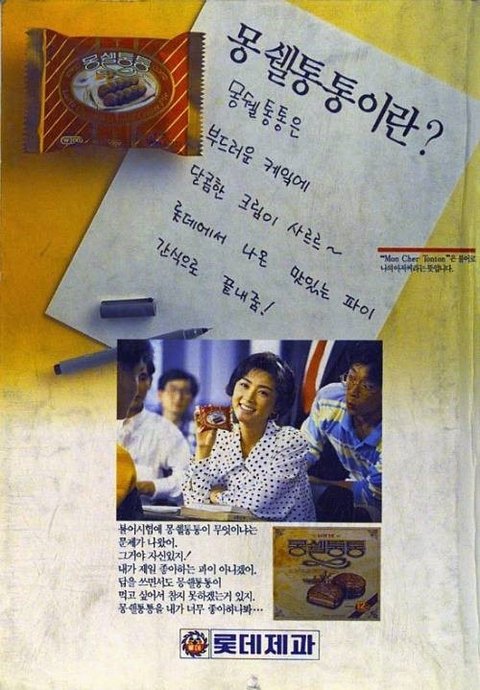 몽쉘통통이란?
몽쉘통통은
부드러운 케익에
달콤한 크림이 사르르~
롯데에서 나온 맛있는 파이
간식으로 끝내줌!
"Mon Cher Tonton"은 불어로
나의 아저씨라는 뜻입니다.
몽쉘통통
불어시험에 몽쉘통통이 무엇이냐는
문제가 나왔어.
그거야 자신있지!
내가 제일 좋아하는 파이 아니겠어.
답을 쓰면서도 몽쉘통통이
먹고 싶어서 참지 못하겠는거 있지.
몽쉘통통을 내가 너무 좋아하나봐…
몽쉘통통
롯데제과